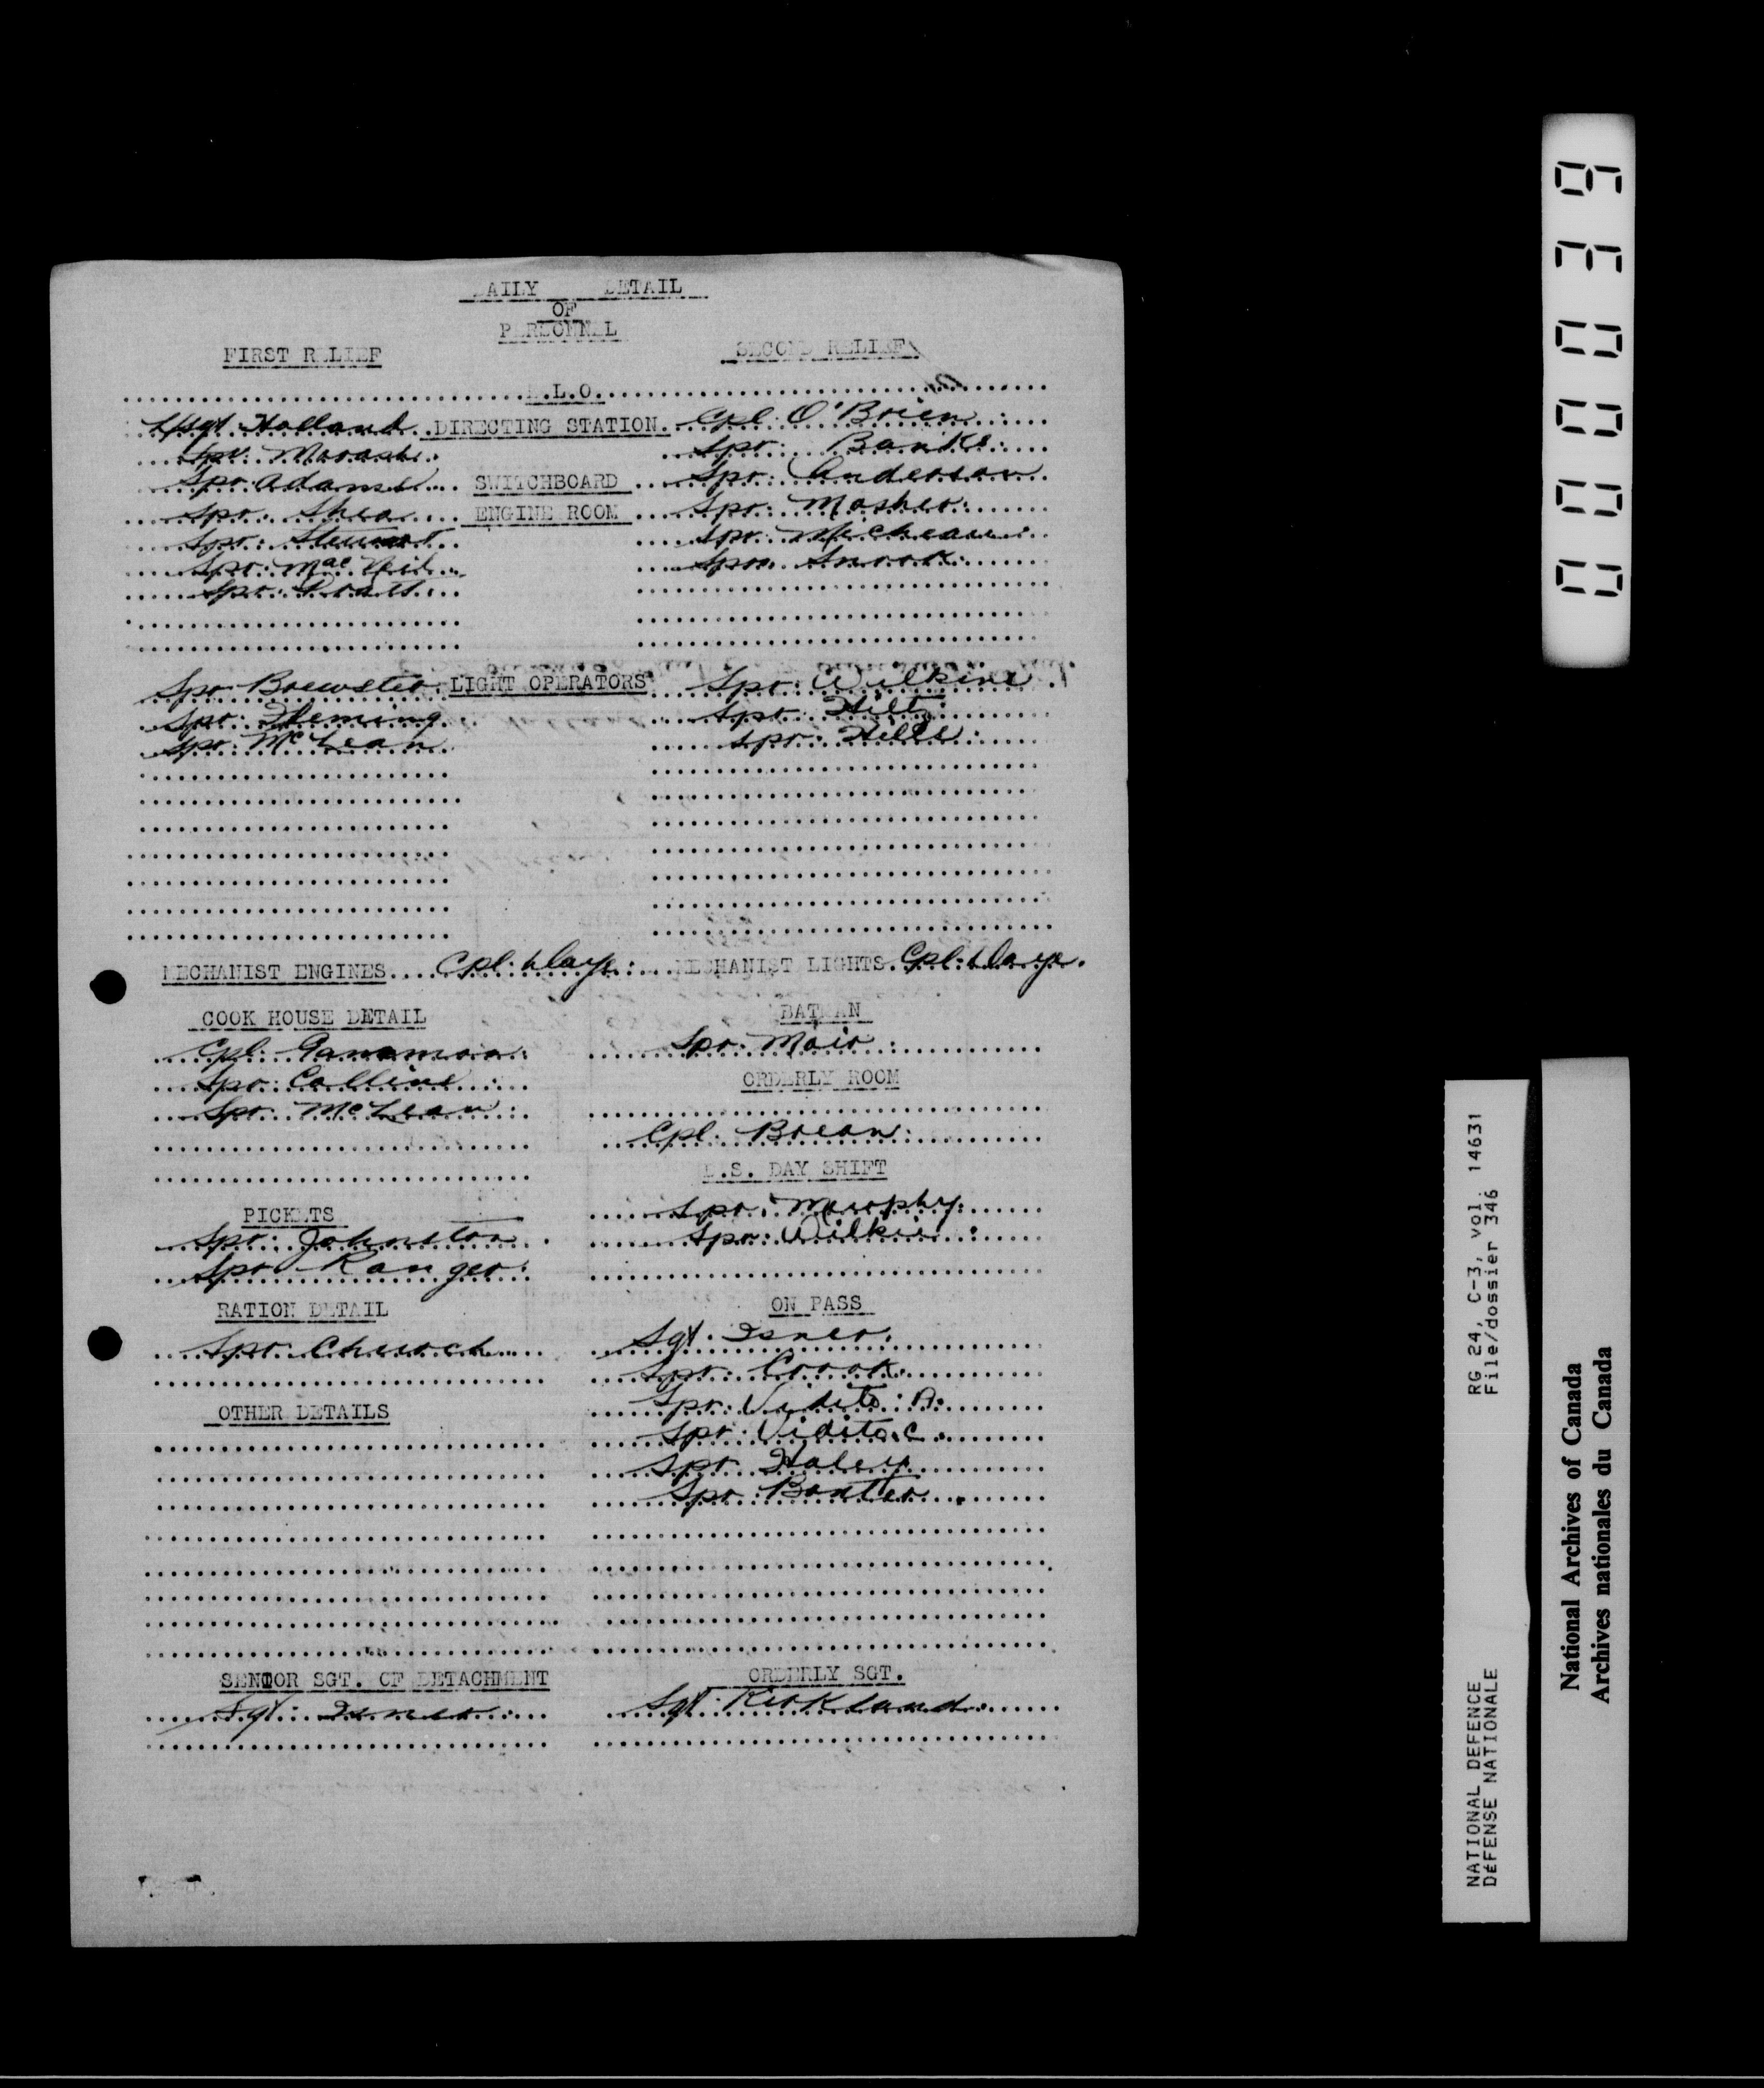 DAILY DETAIL
OF
PERSONNEL
FIRST RELIEF SECOND RELIEF
E.L.O.
L/Sgt. Holland DIRECTING STATION Cpl. O'Brien
Spr. Marash Spr. Banks
Spr. Adams SWITCHBOARD Spr. Anderson
Spr. Shea ENGINE ROOM Spr. Mosher
Spr. Stewart Spr. Micheau
Spr. MacNeil Spr. Snook
Spr. Pratt
Spr. Brewster LIGHT OPERATORS Spr. Wilkins
Spr. Fleming Spr. Hiltz
Spr. McLean Spr. Hills
MECHANIST ENGINES Cpl. Daye MECHANIST LIGHTS Cpl. Daye
COOK HOUSE DETAIL BATMAN
Cpl. Spr. Mair
Spr. Collins ORDERLY ROOM
Spr. McLean
Cpl. Brean
D.S. DAY SHIFT
PICKETS Spr. Murphy
Spr. Johnston Spr. Wilkie
Spr. Ranger
RATION DETAIL ON PASS
Spr. Church Sgt. Isner
Spr. Crook
OTHER DETAILS Spr. Vidito
Spr. Vidito C.
Spr. Haley
Spr. Baxter
SENIOR SGT. OF DETACHMENT ORDERLY SGT.
Sgt. Isner Sgt. Kirkland
000039
RG 24, C-3, vol. 14631
File/dossier 346
NATIONAL DEFENCE
DÉFENSE NATIONALE
National Archives of Canada
Archives nationales du Canada